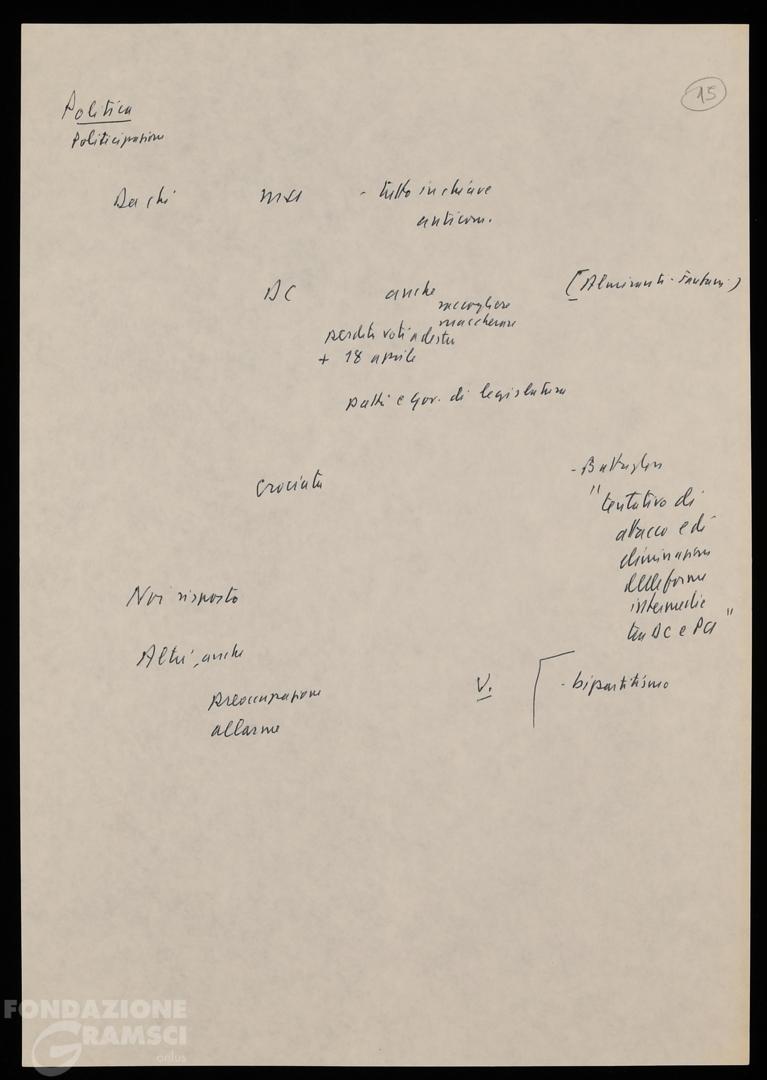 15
Politica
Politicizzazione
Da chi MSI - tutto in chiave
anticom.
DC anche (Almirante - Fanfani)
raccogliere
mascherare
perdita voti a destra
+ 18 aprile
patti e gov. di legislatura
Crociata
- Battaglia
"tentativo di
attacco e di
eliminazione
delle forme
intermedie
tra DC e PCI"
Noi risposto
Altri, anche
preoccupazione
allarme
V. - bipartitismo
FONDAZIONE
GRAMSCI
onlus